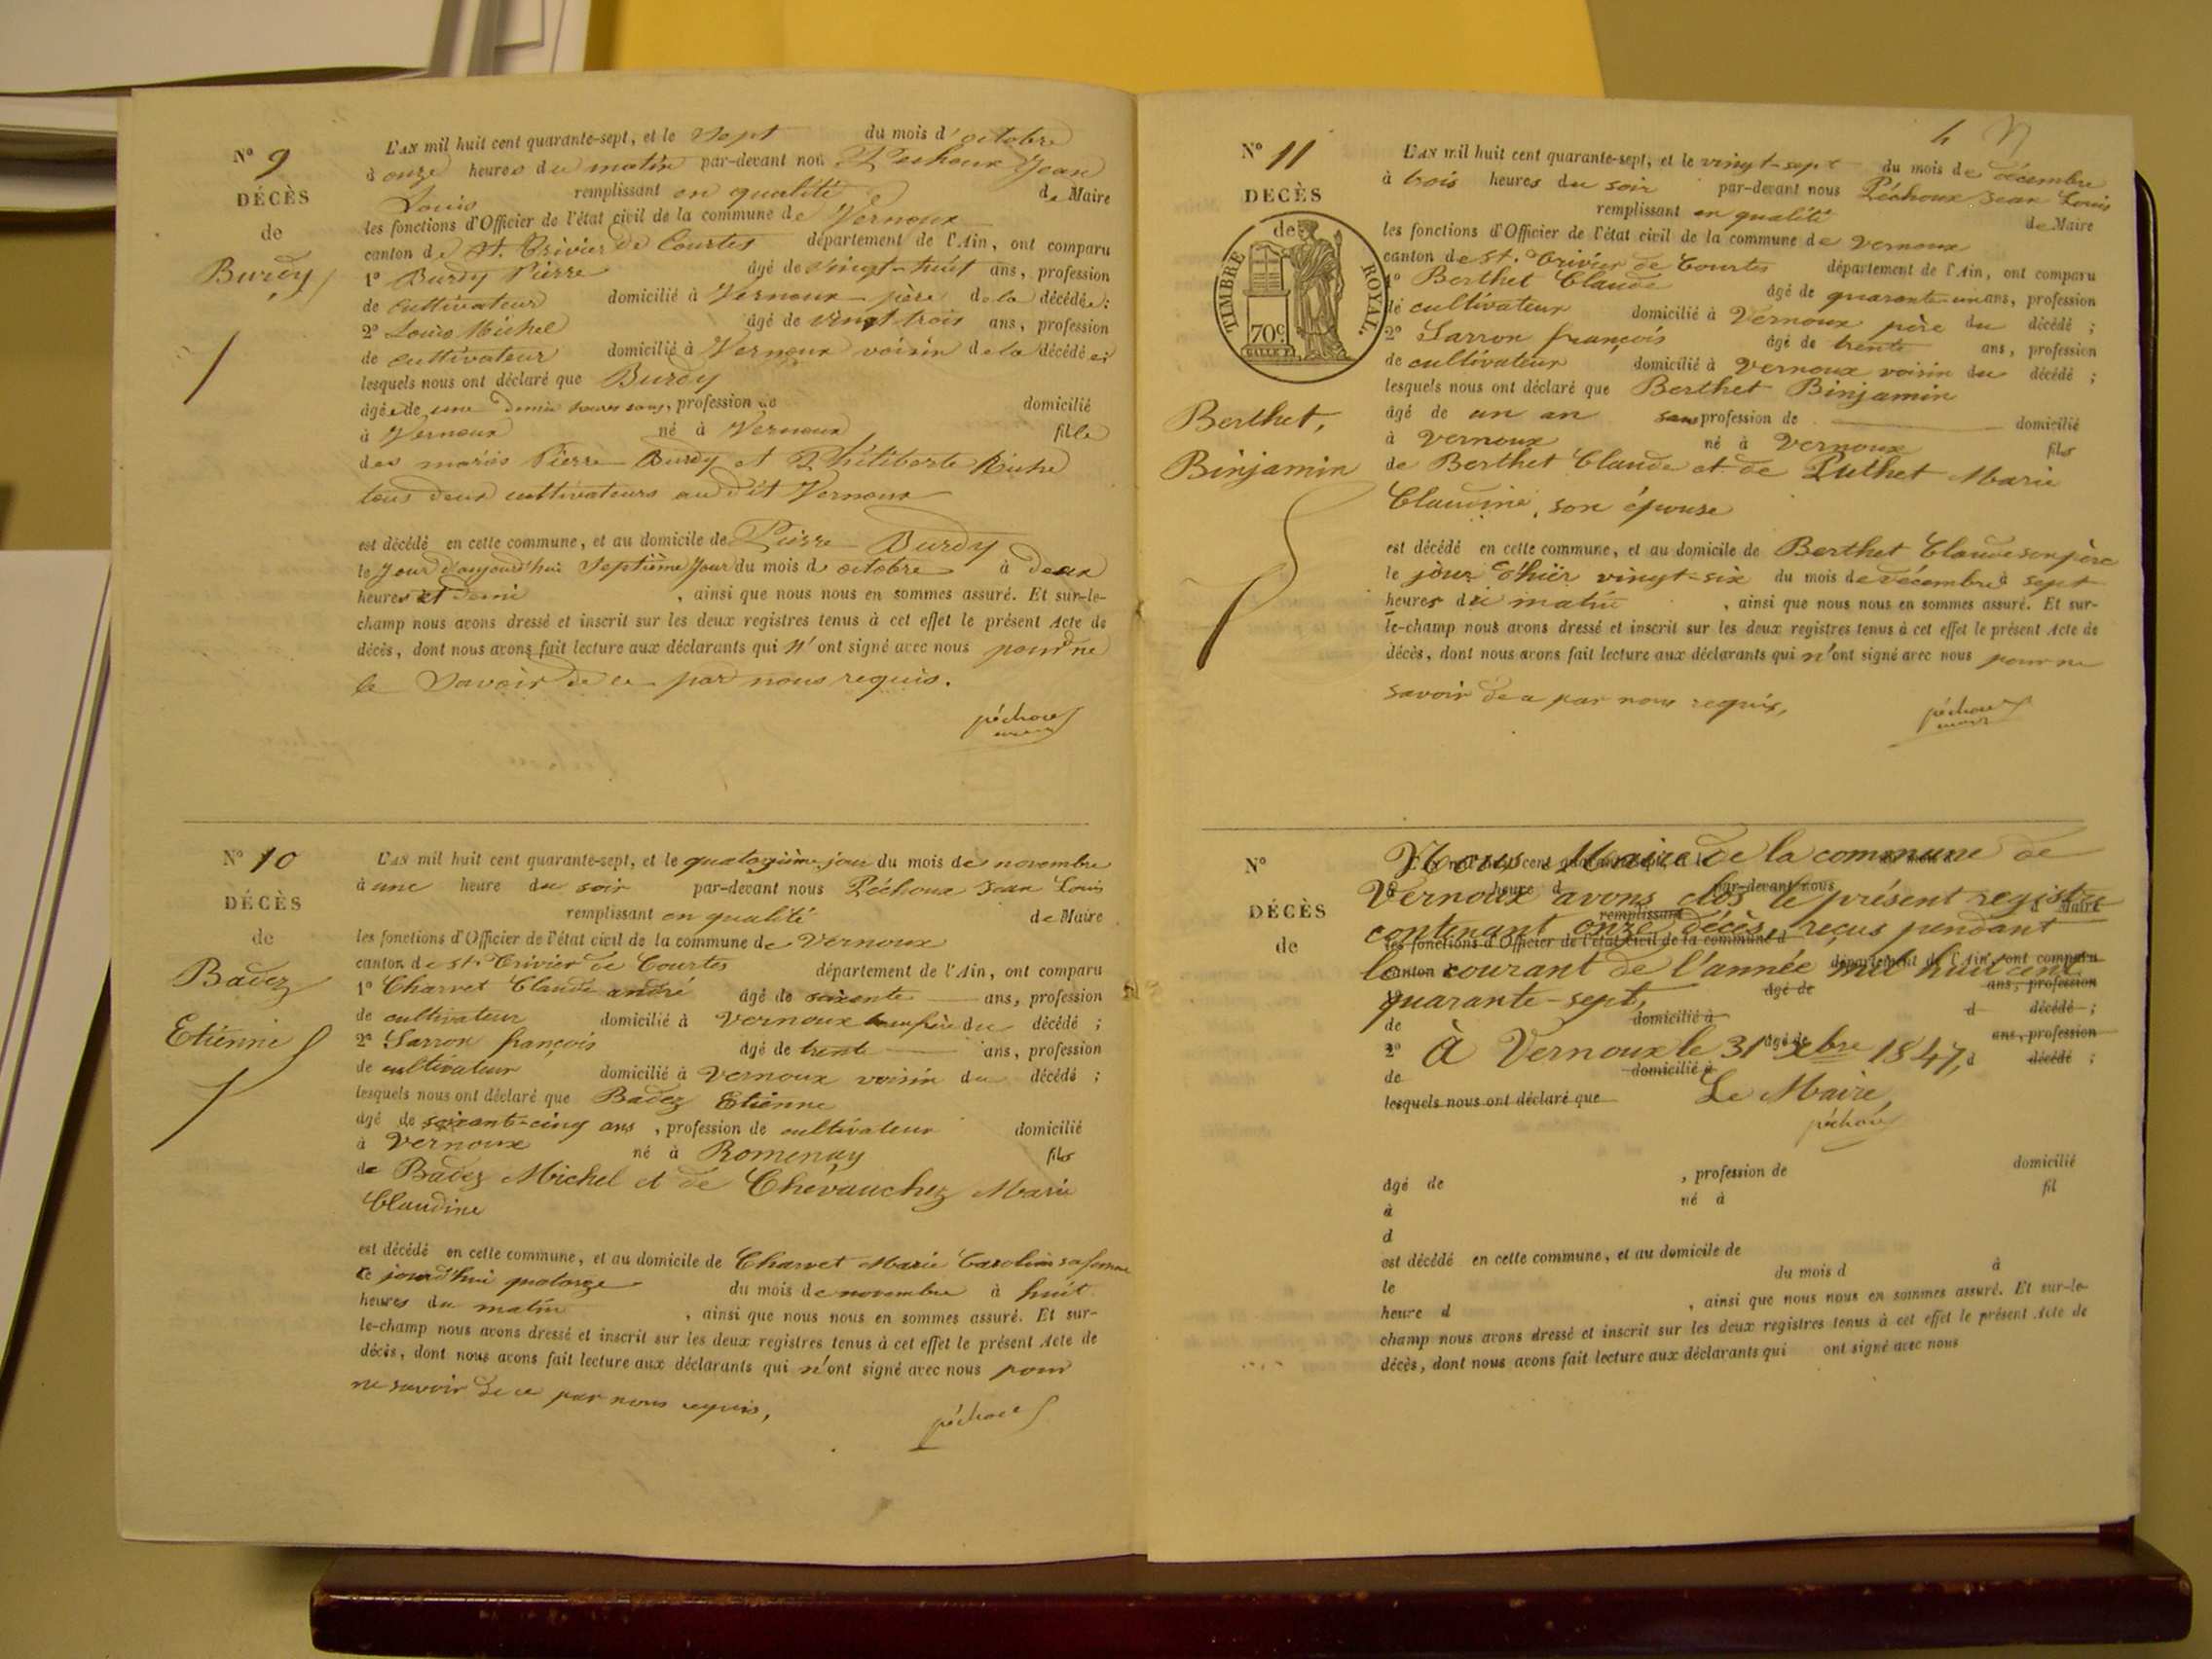 N° 9
DÉCÈS
de
Burdy
L'AN mil huit cent quarante-sept, et le sept du mois d'octobre
à onze heures du matin par-devant nou Péchoux Jean
Louis remplissant en qualité de Maire
les fonctions d'Officier de l'état civil de la commune de Vernoux
canton de St. Trivier de Courtes département de l'Ain, ont comparu
1° Burdy Pierre âgé de vingt-huit ans, profession
de cultivateur domicilié à Vernoux père de la décédée;
2° Louis Michel âgé de vingt-trois ans, profession
de cultivateur domicilié à Vernoux voisin de la décédée;
lesquels nous ont déclaré que Burdy
âgée de une demie heures sans, profession de domicilié
à Vernoux né à Vernoux fille
des mariés Pierre Burdy et Philiberte Riche
tous deux cultivateurs au dit Vernoux
est décédé en cette commune, et au domicile de Pierre Burdy
le Jour d'aujourd'hui Septième Jour du mois de octobre à deux
heures et demi , ainsi que nous nous en sommes assuré. Et sur-le-
champ nous avons dressé et inscrit sur les deux registres tenus à cet effet le présent Acte de
décès, dont nous avons fait lecture aux déclarants qui n'ont signé avec nous pour ne
le Savoir de ce par nous requis.
péchoux
maire
N° 10
DÉCÈS
de
Badez
Etienne
L'AN mil huit cent quarante-sept, et le quatorzième jour du mois de novembre
à une heure du soir par-devant nous Péchoux Jean Louis
remplissant en qualité de Maire
les fonctions d'Officier de l'état civil de la commune de Vernoux
canton de St. Trivier de Courtes département de l'Ain, ont comparu
1° Charvet Claude andré âgé de soixante ans, profession
de cultivateur domicilié à Vernoux beaufrère du décédé;
2° Sarron françois âgé de trente ans, profession
de cultivateur domicilié à Vernoux voisin du décédé;
lesquels nous ont déclaré que Badez Etienne
âgé de soixante-cinq ans, profession de cultivateur domicilié
à Vernoux né à Romenay fils
de Badez Michel et de Chevauchez Marie
Claudine
est décédé en cette commune, et au domicile de Charvet Marie Caroline sa femme
ce jourd'hui quatorze du mois de novembre à huit
heures du matin , ainsi que nous nous en sommes assuré. Et sur-
le-champ nous avons dressé et inscrit sur les deux registres tenus à cet effet le présent Acte de
décès, dont nous avons fait lecture aux déclarants qui n'ont signé avec nous pour
ne savoir de ce par nous requis,
péchoux
4
N° 11
DECÈS
de
TIMBRE ROYAL.
70c
Berthet,
Binjamin
L'AN mil huit cent quarante-sept, et le vingt-sept du mois de décembre
à trois heures du soir par-devant nous Péchoux Jean Louis
remplissant en qualité de Maire
les fonctions d'Officier de l'état civil de la commune de Vernoux
canton de St. Trivier de Courtes département de l'Ain, ont comparu
1° Berthet Claude âgé de quarante-un ans, profession
de cultivateur domicilié à Vernoux père du décédé;
2° Sarron françois âgé de trente ans, profession
de cultivateur domicilié à Vernoux voisin du décédé;
lesquels nous ont déclaré que Berthet Binjamin
âgé de un an sans profession de domicilié
à Vernoux né à Vernoux fils
de Berthet Claude et de Puthet Marie
Claudine, son épouse
est décédé en cette commune, et au domicile de Berthet Claude son père
le jour d'hier vingt-six du mois de décembre à sept
heures du matin , ainsi que nous nous en sommes assuré. Et sur-
le-champ nous avons dressé et inscrit sur les deux registres tenus à cet effet le présent Acte de
décès, dont nous avons fait lecture aux déclarants qui n'ont signé avec nous pour ne
savoir de ce par nous requis,
péchoux
maire
N°
DÉCÈS
de
Nous Maire de la commune de
Vernoux avons clos le présent registre
contenant onze décès, reçus pendant
le courant de l'année mil huit cent
quarante-sept,
À Vernoux le 31 Xbre 1847,
Le Maire,
péchoux
lesquels nous ont déclaré que
âgé de , profession de domicilié
à né à fil
d
est décédé en cette commune, et au domicile de
le du mois d à
heure d , ainsi que nous nous en sommes assuré. Et sur-le-
champ nous avons dressé et inscrit sur les deux registres tenus à cet effet le présent Acte de
décès, dont nous avons fait lecture aux déclarants qui ont signé avec nous